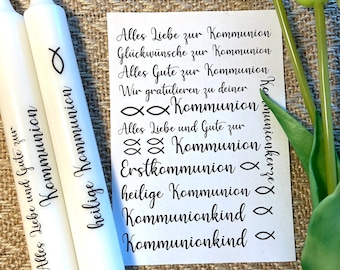 Alles Liebe und Gute zur
Kommunion
heilige Kommunion
Alles Liebe zur Kommunion
Glückwünsche zur Kommunion
Alles Gute zur Kommunion
Wir gratulieren zu deiner
Kommunion
Alles Liebe und Gute zur
Kommunion
Erstkommunion
heilige Kommunion
Kommunionkind
Kommunionkind
Kommunionkerze